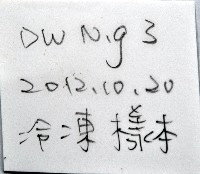 DW N.g 3
2012.10.20
冷凍樣本